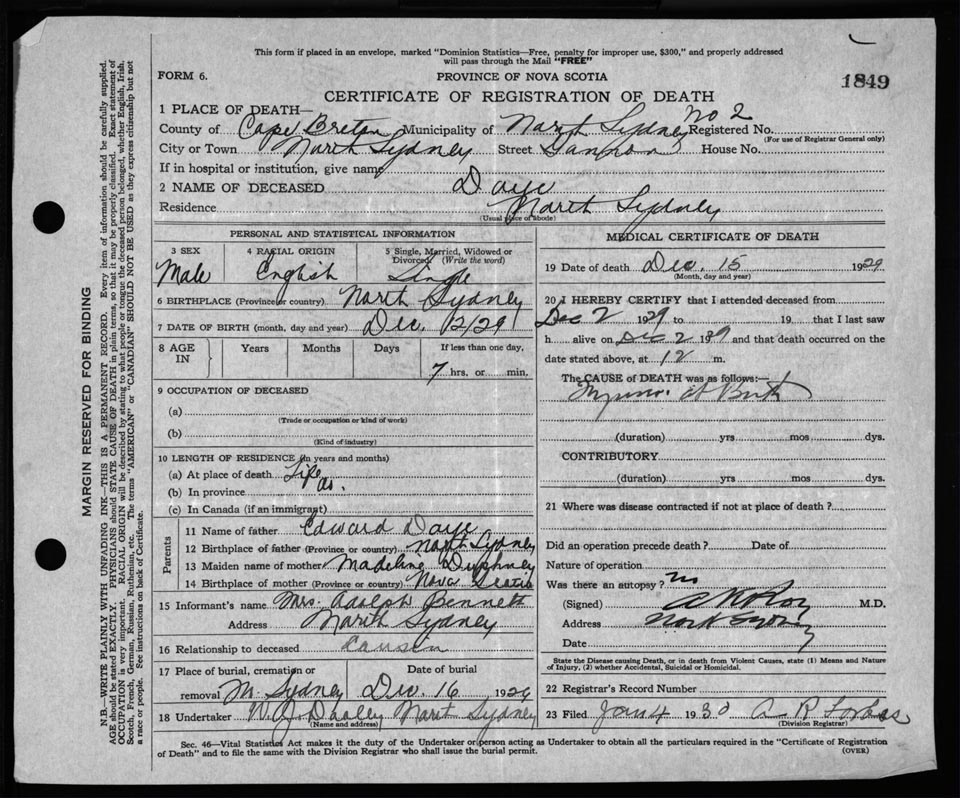 This form if placed in an envelope, marked "Dominion Statistics—Free, penalty for improper use, $300," and properly addressed
will pass through the Mail "FREE"
FORM 6.
PROVINCE OF NOVA SCOTIA
1849
CERTIFICATE OF REGISTRATION OF DEATH
1 PLACE OF DEATH—
No 2
County of Cape Breton Municipality of North Sydney Registered No.
(For use of Registrar General only)
City or Town North Sydney Street Gannon House No.
If in hospital or institution, give name
2 NAME OF DECEASED Daye
Residence North Sydney
(Usual place of abode)
PERSONAL AND STATISTICAL INFORMATION
3 SEX Male
4 RACIAL ORIGIN English
5 Single, Married, Widowed or Divorced (Write the word) Single
6 BIRTHPLACE (Province or country) North Sydney
7 DATE OF BIRTH (month, day and year) Dec. 12/29
8 AGE IN
Years
Months
Days
If less than one day,
7 hrs. or min.
9 OCCUPATION OF DECEASED
(a)
(Trade or occupation or kind of work)
(b)
(Kind of industry)
10 LENGTH OF RESIDENCE (In years and months)
(a) At place of death Life
(b) In province
(c) In Canada (if an immigrant)
Parents
11 Name of father Edward Daye
12 Birthplace of father (Province or country) North Sydney
13 Maiden name of mother Madeline Duphney
14 Birthplace of mother (Province or country) Nova Scotia
15 Informant's name Mrs. Adolph Bennett
Address North Sydney
16 Relationship to deceased Cousin
17 Place of burial, cremation or removal N. Sydney
Date of burial Dec. 16 1926
18 Undertaker W J Dooley North Sydney
(Name and address)
MEDICAL CERTIFICATE OF DEATH
19 Date of death Dec. 15 1929
(Month, day and year)
20 I HEREBY CERTIFY that I attended deceased from
Dec 2 1929 to 19 that I last saw
h alive on Dec 2 1929 and that death occurred on the
date stated above, at 12 m.
The CAUSE of DEATH was as follows:—
at Birth
(duration) yrs mos dys.
CONTRIBUTORY
(duration) yrs mos dys.
21 Where was disease contracted if not at place of death?
Did an operation precede death? Date of
Nature of operation
Was there an autopsy? no
(Signed) M.D.
Address North Sydney
Date
State the Disease causing Death, or in death from Violent Causes, state (1) Means and Nature
of Injury, (2) whether Accidental, Suicidal or Homicidal.
22 Registrar's Record Number
23 Filed Jan 4 1930 A R Forbes
(Division Registrar)
Sec. 46—Vital Statistics Act makes it the duty of the Undertaker or person acting as Undertaker to obtain all the particulars required in the "Certificate of Registration
of Death" and to file the same with the Division Registrar who shall issue the burial permit.
(OVER)
MARGIN RESERVED FOR BINDING
N.B.—WRITE PLAINLY WITH UNFADING INK—THIS IS A PERMANENT RECORD. Every item of information should be carefully supplied.
AGE should be stated EXACTLY. PHYSICIANS should STATE CAUSE OF DEATH in plain terms, so that it may be properly classified. Exact statement of
OCCUPATION is very important. RACIAL ORIGIN will be described by stating to what people or tongue the deceased person belonged, whether English, Irish,
Scotch, French, German, Russian, Ruthenian, etc. The terms "AMERICAN" or "CANADIAN" SHOULD NOT BE USED as they express citizenship but not
a race or people. See instructions on back of Certificate.